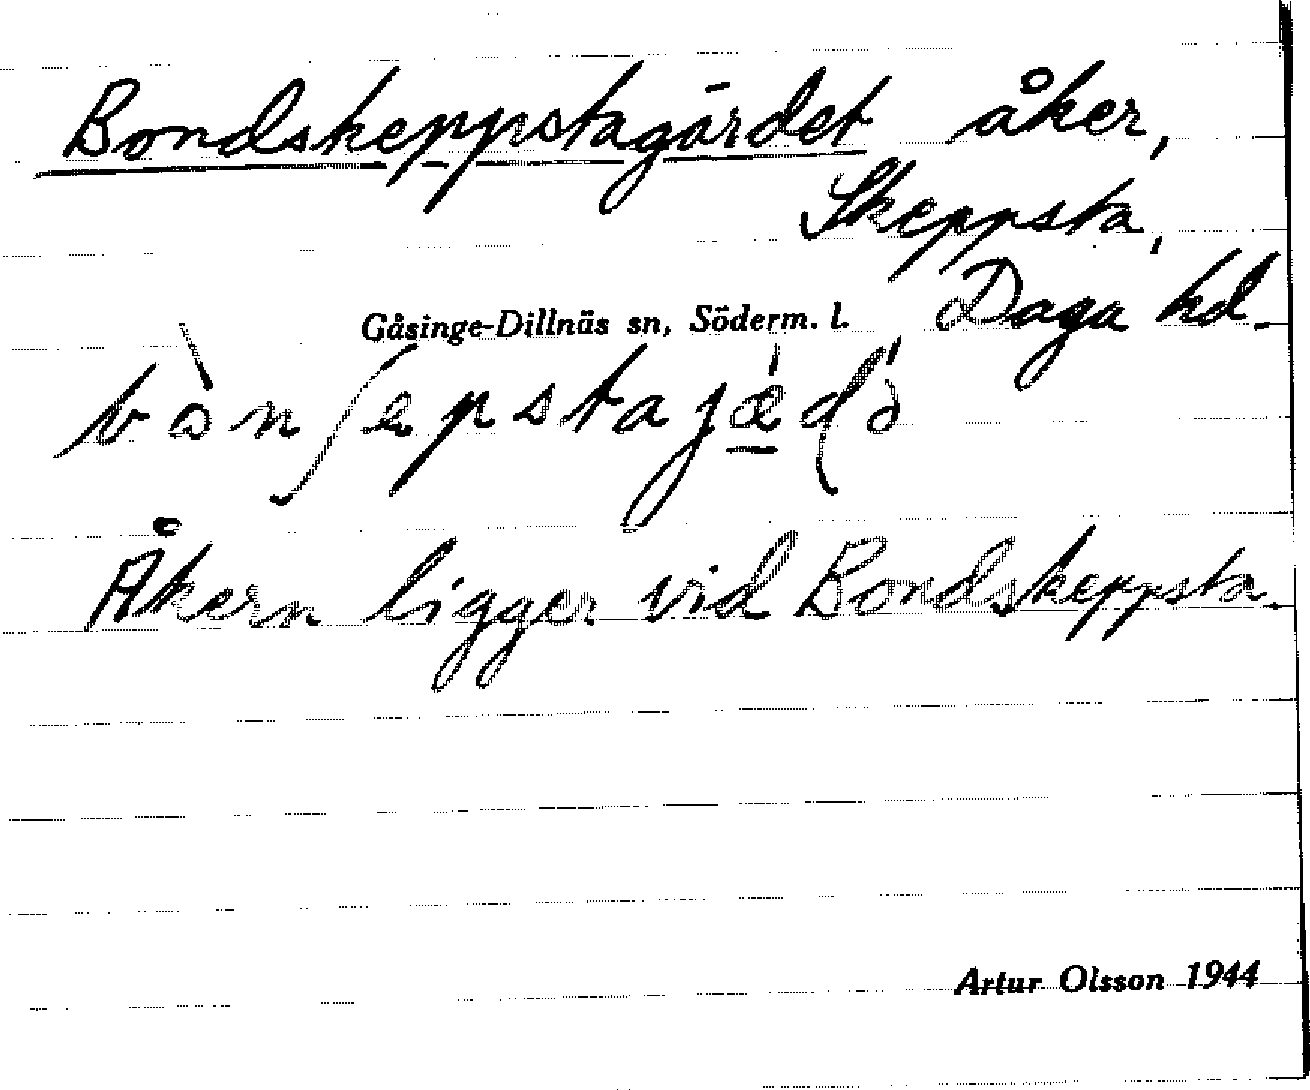 Bondskeppstagärdet åker,
Skeppsta,
Gåsinge-Dillnäs sn, Söderm. l. Daga hd.
Åkern ligger vid Bondskeppsta.
Artur Olsson 1944